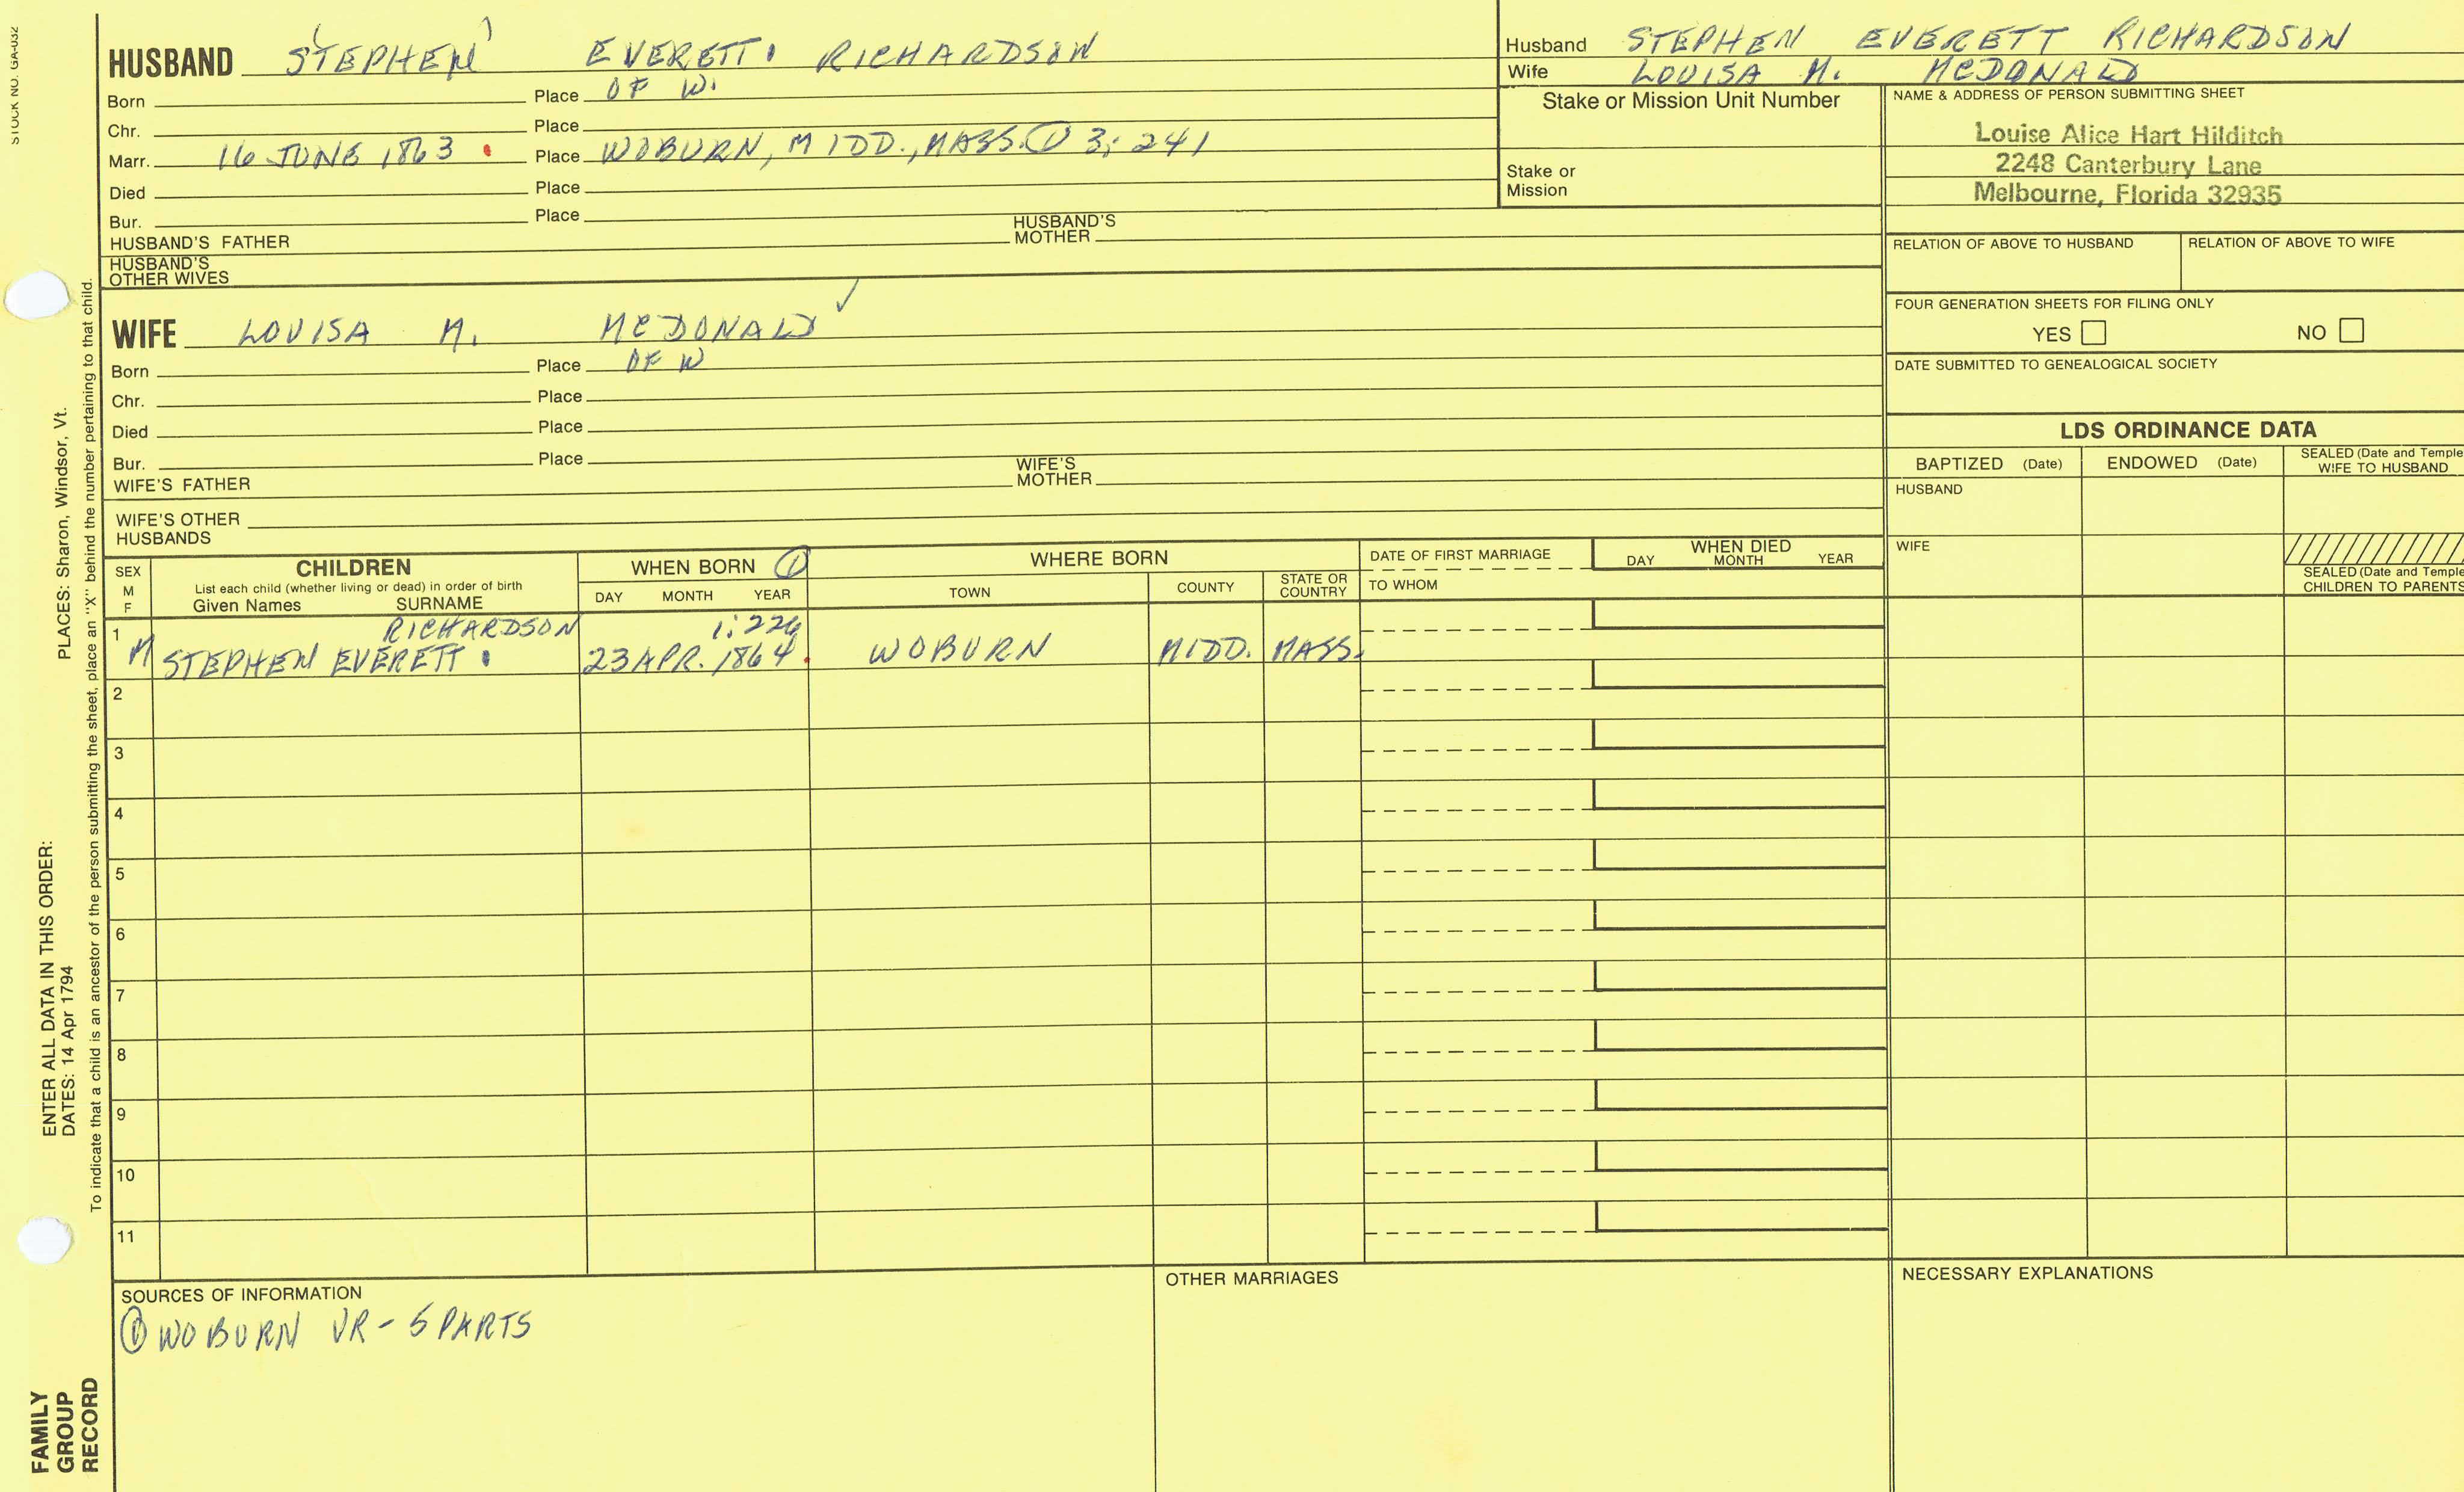 STOCK NO. GA-032
HUSBAND STEPHEN EVERETT RICHARDSON
Born Place OF W.
Chr. Place
Marr. 16 JUNE 1863 Place WOBURN, MIDD., MASS. ① 3; 241
Died Place
Bur. Place
HUSBAND'S FATHER HUSBAND'S MOTHER
HUSBAND'S OTHER WIVES
WIFE LOUISA M. MCDONALD ✓
Born Place OF W
Chr. Place
Died Place
Bur. Place
WIFE'S FATHER WIFE'S MOTHER
WIFE'S OTHER HUSBANDS
Husband STEPHEN EVERETT RICHARDSON
Wife LOUISA M. MCDONALD
Stake or Mission Unit Number
Stake or Mission
NAME & ADDRESS OF PERSON SUBMITTING SHEET
Louise Alice Hart Hilditch
2248 Canterbury Lane
Melbourne, Florida 32935
RELATION OF ABOVE TO HUSBAND RELATION OF ABOVE TO WIFE
FOUR GENERATION SHEETS FOR FILING ONLY
YES NO
DATE SUBMITTED TO GENEALOGICAL SOCIETY
LDS ORDINANCE DATA
BAPTIZED (Date) ENDOWED (Date) SEALED (Date and Temple
WIFE TO HUSBAND
HUSBAND
WIFE
SEALED (Date and Temple
CHILDREN TO PARENTS
SEX M F CHILDREN WHEN BORN ① WHERE BORN DATE OF FIRST MARRIAGE WHEN DIED
List each child (whether living or dead) in order of birth
Given Names SURNAME DAY MONTH YEAR TOWN COUNTY STATE OR COUNTRY TO WHOM DAY MONTH YEAR
1 RICHARDSON 1; 226
M STEPHEN EVERETT 23 APR. 1864 WOBURN MIDD. MASS.
2
3
4
5
6
7
8
9
10
11
SOURCES OF INFORMATION OTHER MARRIAGES NECESSARY EXPLANATIONS
① WOBURN VR - 5 PARTS
ENTER ALL DATA IN THIS ORDER:
DATES: 14 Apr 1794 PLACES: Sharon, Windsor, Vt.
To indicate that a child is an ancestor of the person submitting the sheet, place an "X" behind the number pertaining to that child.
FAMILY
GROUP
RECORD